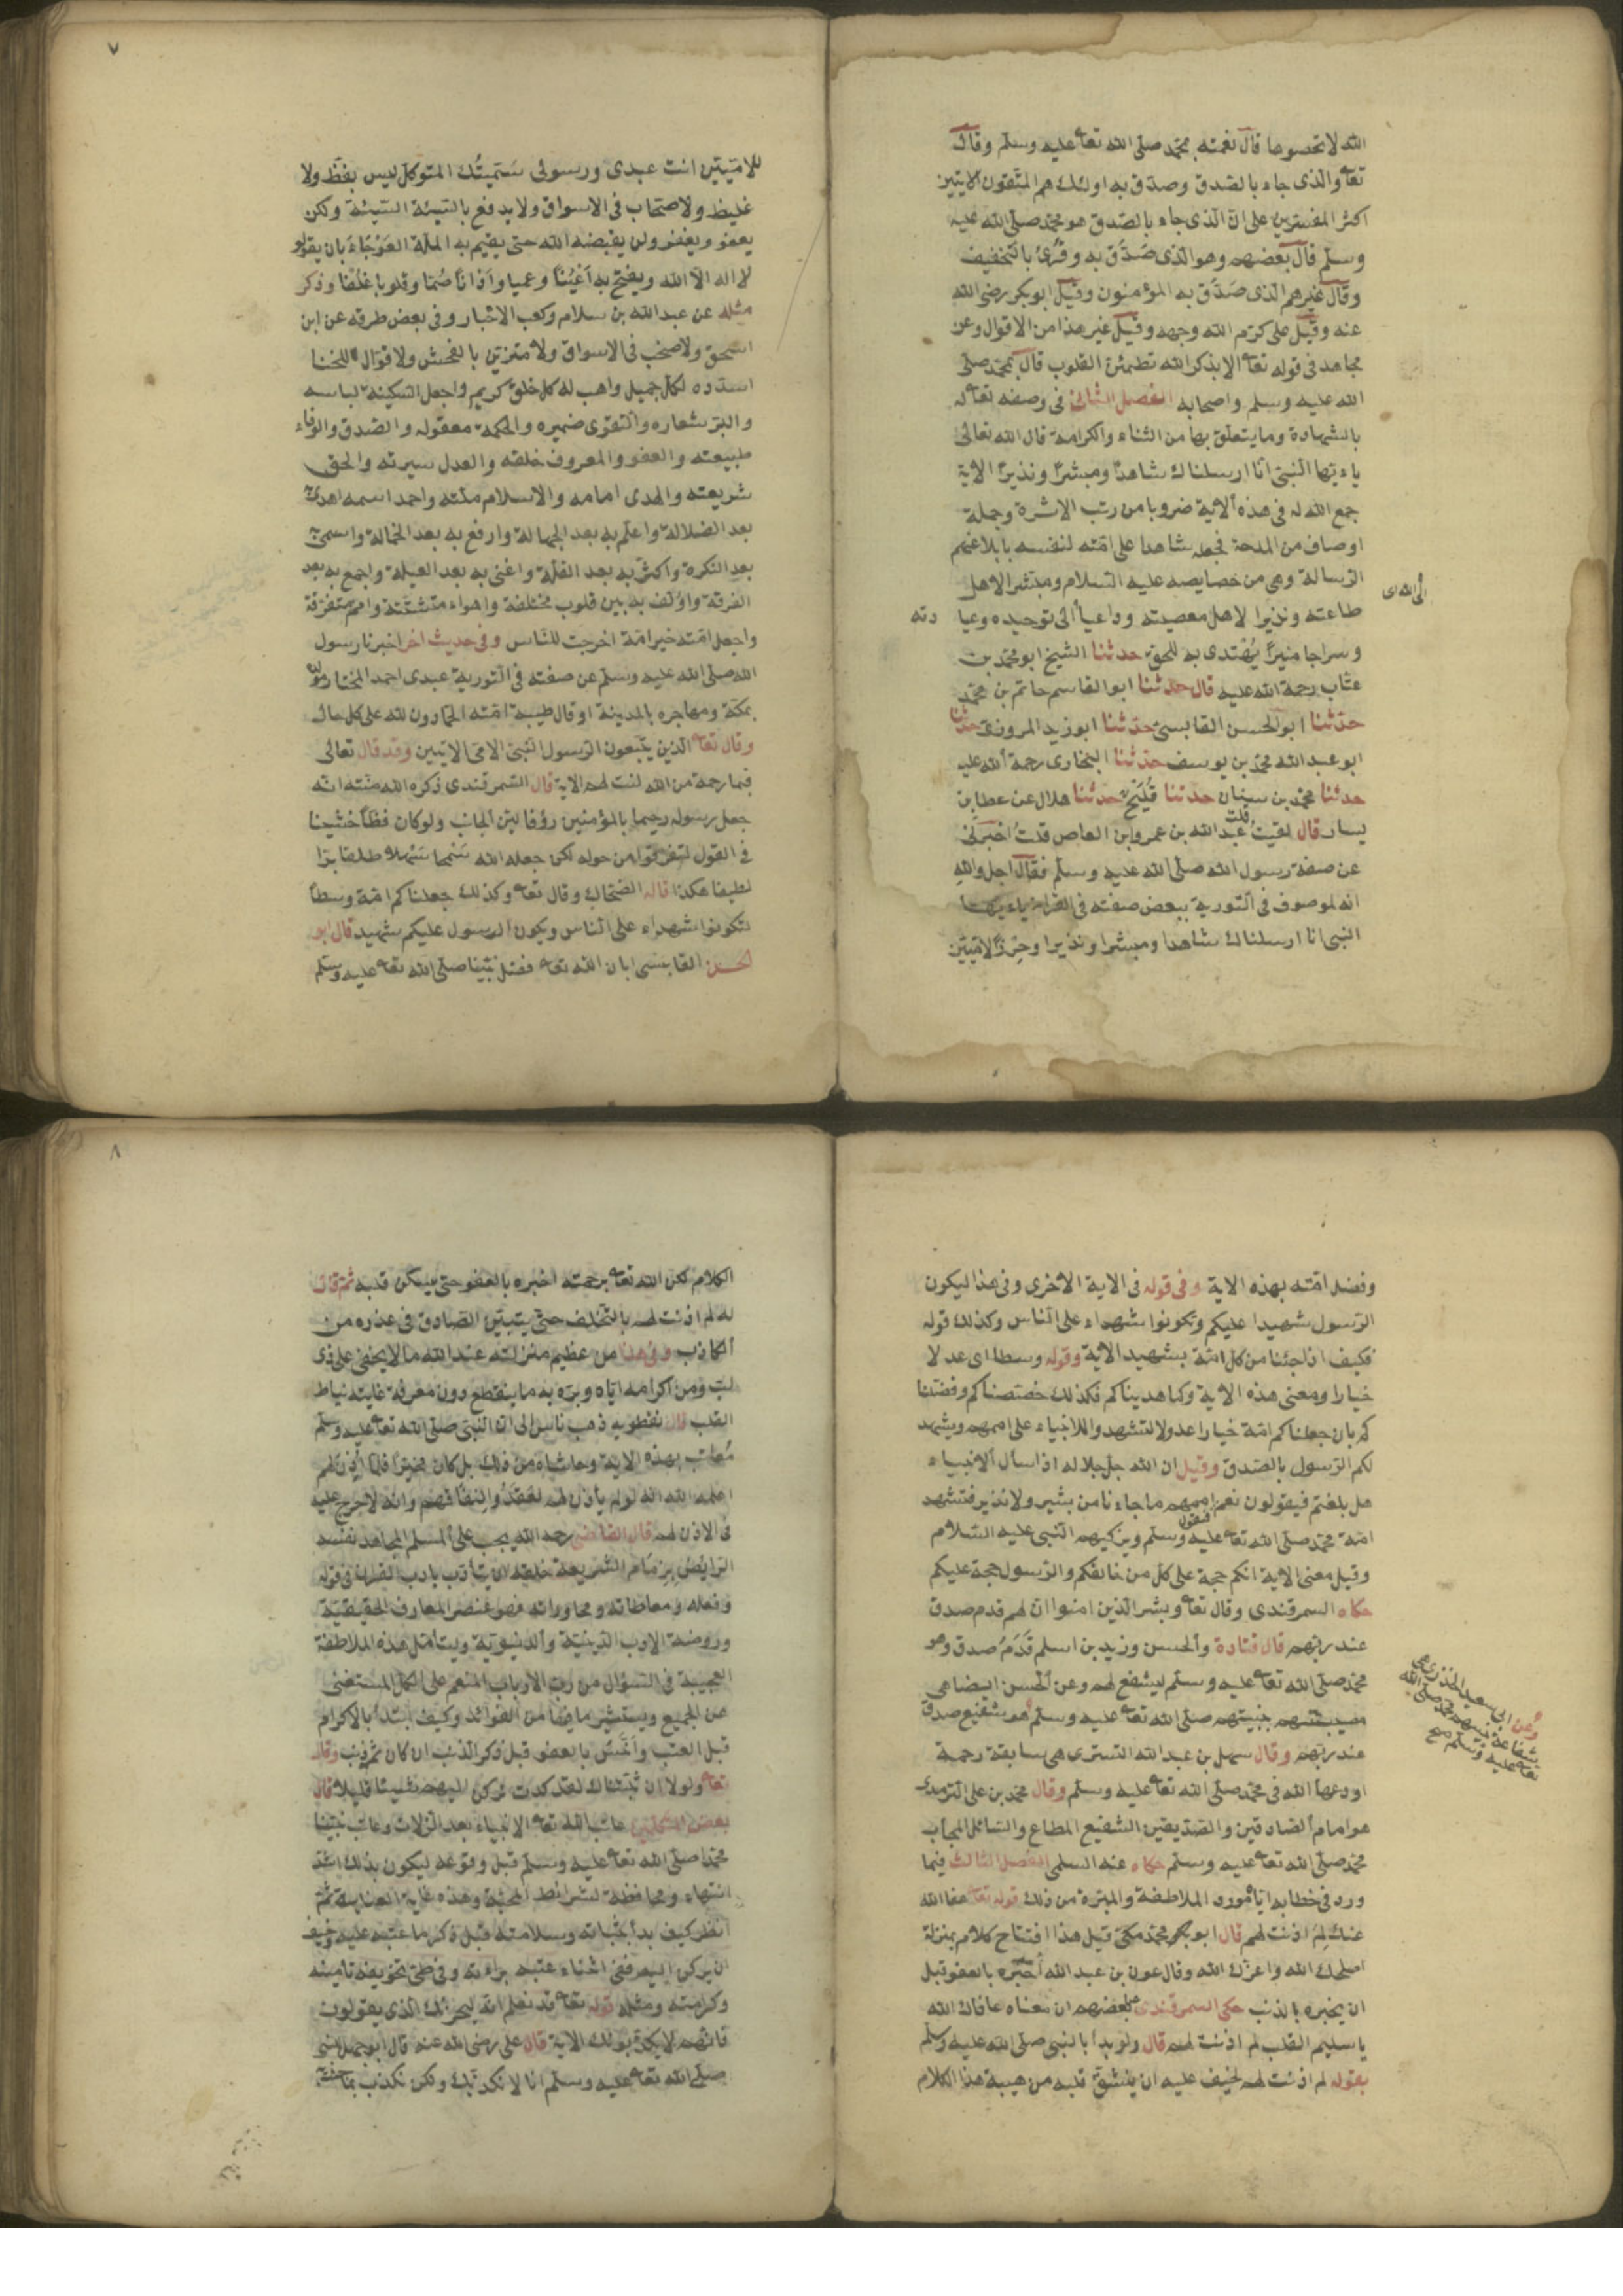 الله لا تحصوها قال نعمته بمحمد صلى الله تعا عليه وسلم وقال
تعا والذى جاء بالصدق وصدق به اولئك هم المتقون الايتين
اكثر المفسرين على ان الذى جاء بالصدق هو محمد صلى الله عليه
وسلم قال بعضهم وهو الذى صَدَّق به وقُرِئ بالتخفيف
وقال غيرهم الذى صَدَّق به المؤمنون وقيل ابو بكر رضى الله
عنه وقيل على كرم الله وجهه وقيل غير هذا من الاقوال وعن
مجاهد فى قوله تعا الا بذكر الله تطمئن القلوب قال بمحمد صلى
الله عليه وسلم واصحابه الفصل الثانى فى وصفه تعا له
بالشهادة وما يتعلق بها من الثناء والكرامة قال الله تعالى
ياءيها النبى انا ارسلناك شاهدا ومبشرا ونذيرا الاية
جمع الله له فى هذه الاية ضروبا من رتب الاثرة وجملة
اوصاف من المدحة فجعله شاهدا على امته لنفسه بابلاغهم
الرسالة وهى من خصايصه عليه السلام ومبشر الاهل
طاعته ونذيرا لاهل معصيته وداعيا الى توحيده وعبا دته
الى الله اى
وسراجا منيرا يُهْتدى به للحق حدثنا الشيخ ابو محمد بن
عتاب رحمة الله عليه قال حدثنا ابو القاسم حاتم بن محمد
حدثنا ابو الحسن القابسى حدثنا ابو زيد المروزى حدثنا
ابو عبد الله محمد بن يوسف حدثنا البخارى رحمة الله عليه
حدثنا محمد بن سنان حدثنا فُلَيح حدثنا هلال عن عطا بن
يسار قال لقيت عبد الله بن عمرو ابن العاص قلت اخبرنى
عن صفة رسول الله صلى الله عليه وسلم فقال اجل والله
انه لموصوف فى التورية ببعض صفته فى القران ياءيها
النبى انا ارسلناك شاهدا ومبشرا ونذيرا وحِرزًا لاميين
٧
للاميين انت عبدى ورسولى سَمَّيتُك المتوكل ليس بفظ ولا
غليظ ولا صخاب فى الاسواق ولا يدفع بالسيئة السيئة ولكن
يعفو ويغفر ولن يقبضه الله حتى يقيم به الملة العَوْجَاءَ بان يقولو
لا اله الا الله ويفتح به اَعْيُنًا وعميا واَذانًا صُمًا وقلوبا غلُفا وذكر
مثله عن عبد الله بن سلام وكعب الاحبار وفى بعض طرقه عن ابن
اسحق ولا صخب فى الاسواق ولا متزين بالفحش ولا قوال للخنا
اسدده لكل جميل واهب له كل خلق كريم واجعل السكينة لباسه
والبر شعاره والتقوى ضميره والحكمة معقوله والصدق والوفاء
طبيعته والعفو والمعروف خلقه والعدل سيرته والحق
شريعته والهدى امامه والاسلام ملته واحمد اسمه اهدى به
بعد الضلالة واعلم به بعد الجهالة وارفع به بعد الخمالة واسمى به
بعد النكرة واكثر به بعد القلة واغنى به بعد العيلة واجمع به بعد
الفرقة واؤلف به بين قلوب مختلفة واهواء متشتتة وامم متفرقة
واجعل امته خير امة اخرجت للناس وفى حديث اخر اخبرنا رسول
الله صلى الله عليه وسلم عن صفته فى التورية عبدى احمد المختار مولده
بمكة ومهاجره بالمدينة او قال طيبة امته الحمادون لله على كل حال
وقال تعا الذين يتبعون الرسول النبى الامى الايتين وقد قال تعالى
فبما رحمة من الله لنت لهم الاية قال السمرقندى ذكره الله منته انه
جعل رسوله رحيما بالمؤمنين رؤفا لين الجانب ولو كان فظا خشينا
فى القول لتفرقوا من حوله لكن جعله الله سَمْحا سَهْلا طلقا برا
لطيفا هكذا قاله الضحاك وقال تعا وكذلك جعلناكم امة وسطا
لتكونوا شهداء على الناس ويكون الرسول عليكم شهيد قال ابو
الحسن القابسى ابان الله تعا فضل نبينا صلى الله تعا عليه وسلم
وفضل امته بهذه الاية وفى قوله فى الاية الاخرى وفى هذا ليكون
الرسول شهيدا عليكم وتكونوا شهداء على الناس وكذلك قوله
فكيف اذا جئنا من كل امة بشهيد الاية وقوله وسطا اى عدلا
خيارا ومعنى هذه الاية وكما هديناكم فكذلك خصصناكم وفضلنا
كم بان جعلناكم امة خيارا عدولا لتشهدوا للانبياء على اممهم ويشهد
لكم الرسول بالصدق وقيل ان الله جل جلاله اذا سأل الانبياء
هل بلغتم فيقولون نعم اممهم ما جاءنا من بشير ولا نذير فتشهد
فيقول
امة محمد صلى الله تعا عليه وسلم ويزكيهم النبى عليه السلام
وقيل معنى الاية انكم حجة على كل من خالفكم والرسول حجة عليكم
حكاه السمرقندى وقال تعا وبشر الذين امنوا ان لهم قدم صدق
عند ربهم قال قتادة والحسن وزيد بن اسلم قَدَمُ صدق وهو
محمد صلى الله تعا عليه وسلم ليشفع لهم وعن الحسن ايضا هى
مصيبتهم بنبيهم صلى الله تعا عليه وسلم هو شفيع صدق
وعن ابى سعيد الخدرى هى
شفاعة نبيهم محمد صلى الله
تعا عليه وسلم صح
عند ربهم وقال سهل بن عبد الله التسترى هى سابقة رحمة
اودعها الله فى محمد صلى الله تعا عليه وسلم وقال محمد بن على الترمذى
هو امام الصادقين والصديقين الشفيع المطاع والسائل المجاب
محمد صلى الله تعا عليه وسلم حكاه عنه السلمى الفصل الثالث فيما
ورد فى خطابه اياه مورد الملاطفة والمبرة من ذلك قوله تعا عفا الله
عنك لِمَ اذنت لهم قال ابو بكر محمد مكى قيل هذا افتتاح كلام بمنزلة
اصلحك الله واعزك الله وقال عون بن عبد الله اخبره بالعفو قبل
ان يخبره بالذنب حكى السمرقندى عن بعضهم ان معناه عافاك الله
يا سليم القلب لم اذنت لهم قال ولو بدأ بالنبى صلى الله عليه وسلم
بقوله لم اذنت لهم لخيف عليه ان ينشق قلبه من هيبة هذا الكلام
٨
الكلام لكن الله تعا برحمته اخبره بالعفو حتى يسكن قلبه ثم قال
له لم اذنت لهم بالتخلف حتى يتبين الصادق فى عذره من
الكاذب وفى هذا من عظيم منزلته عند الله ما لا يخفى على ذى
لب ومن اكرامه اياه وبره به ما ينقطع دون معرفة غايته نياط
القلب قال نفطويه ذهب ناس الى ان النبى صلى الله تعا عليه وسلم
مُعاتب بهذه الاية وحاشاه من ذلك بل كان مخيرا فلما اَذِن لهم
اعلمه الله انه لو لم يأذن لهم لقعدوا لنفاقهم وانه لا حرج عليه
فى الاذن لهم قال القاضى رحمه الله يجب على المسلم المجاهد نفسه
الرايض بزمام الشريعة خلقه ان يتأدب بادب القران فى قوله
وفعله ومعاطاته ومحاوراته فهو عنصر المعارف الحقيقية
وروضة الاداب الدينية والدنيوية وليتأمل هذه الملاطفة
العجيبة فى السؤال من رب الارباب المنعم على الكل المستغنى
عن الجميع ويستثير ما فيها من الفوائد وكيف ابتدأ بالاكرام
قبل العتب وآنس بالعفو قبل ذكر الذنب ان كان ثم ذنب وقال
تعا ولولا ان ثبتناك لقد كدت تركن اليهم شيئا قليلا قال
بعض المتكلمين عاتب الله تعا الانبياء بعد الزلات وعاتب نبينا
محمدا صلى الله تعا عليه وسلم قبل وقوعه ليكون بذلك اشد
انتهاء ومحافظة لشرائط المحبة وهذه غاية العناية ثم
انظر كيف بدأ بثباته وسلامته قبل ذكر ما عتبه عليه وخيف
ان يركن اليه ففى اثناء عتبه براءته وفى طى تخويفه تأمينه
وكرامته ومثله قوله تعا قد نعلم انه ليحزنك الذى يقولون
فانهم لا يكذبونك الاية قال على رضى الله عنه قال ابو جهل للنبى
صلى الله تعا عليه وسلم انا لا نكذبك ولكن نكذب بما جئت به